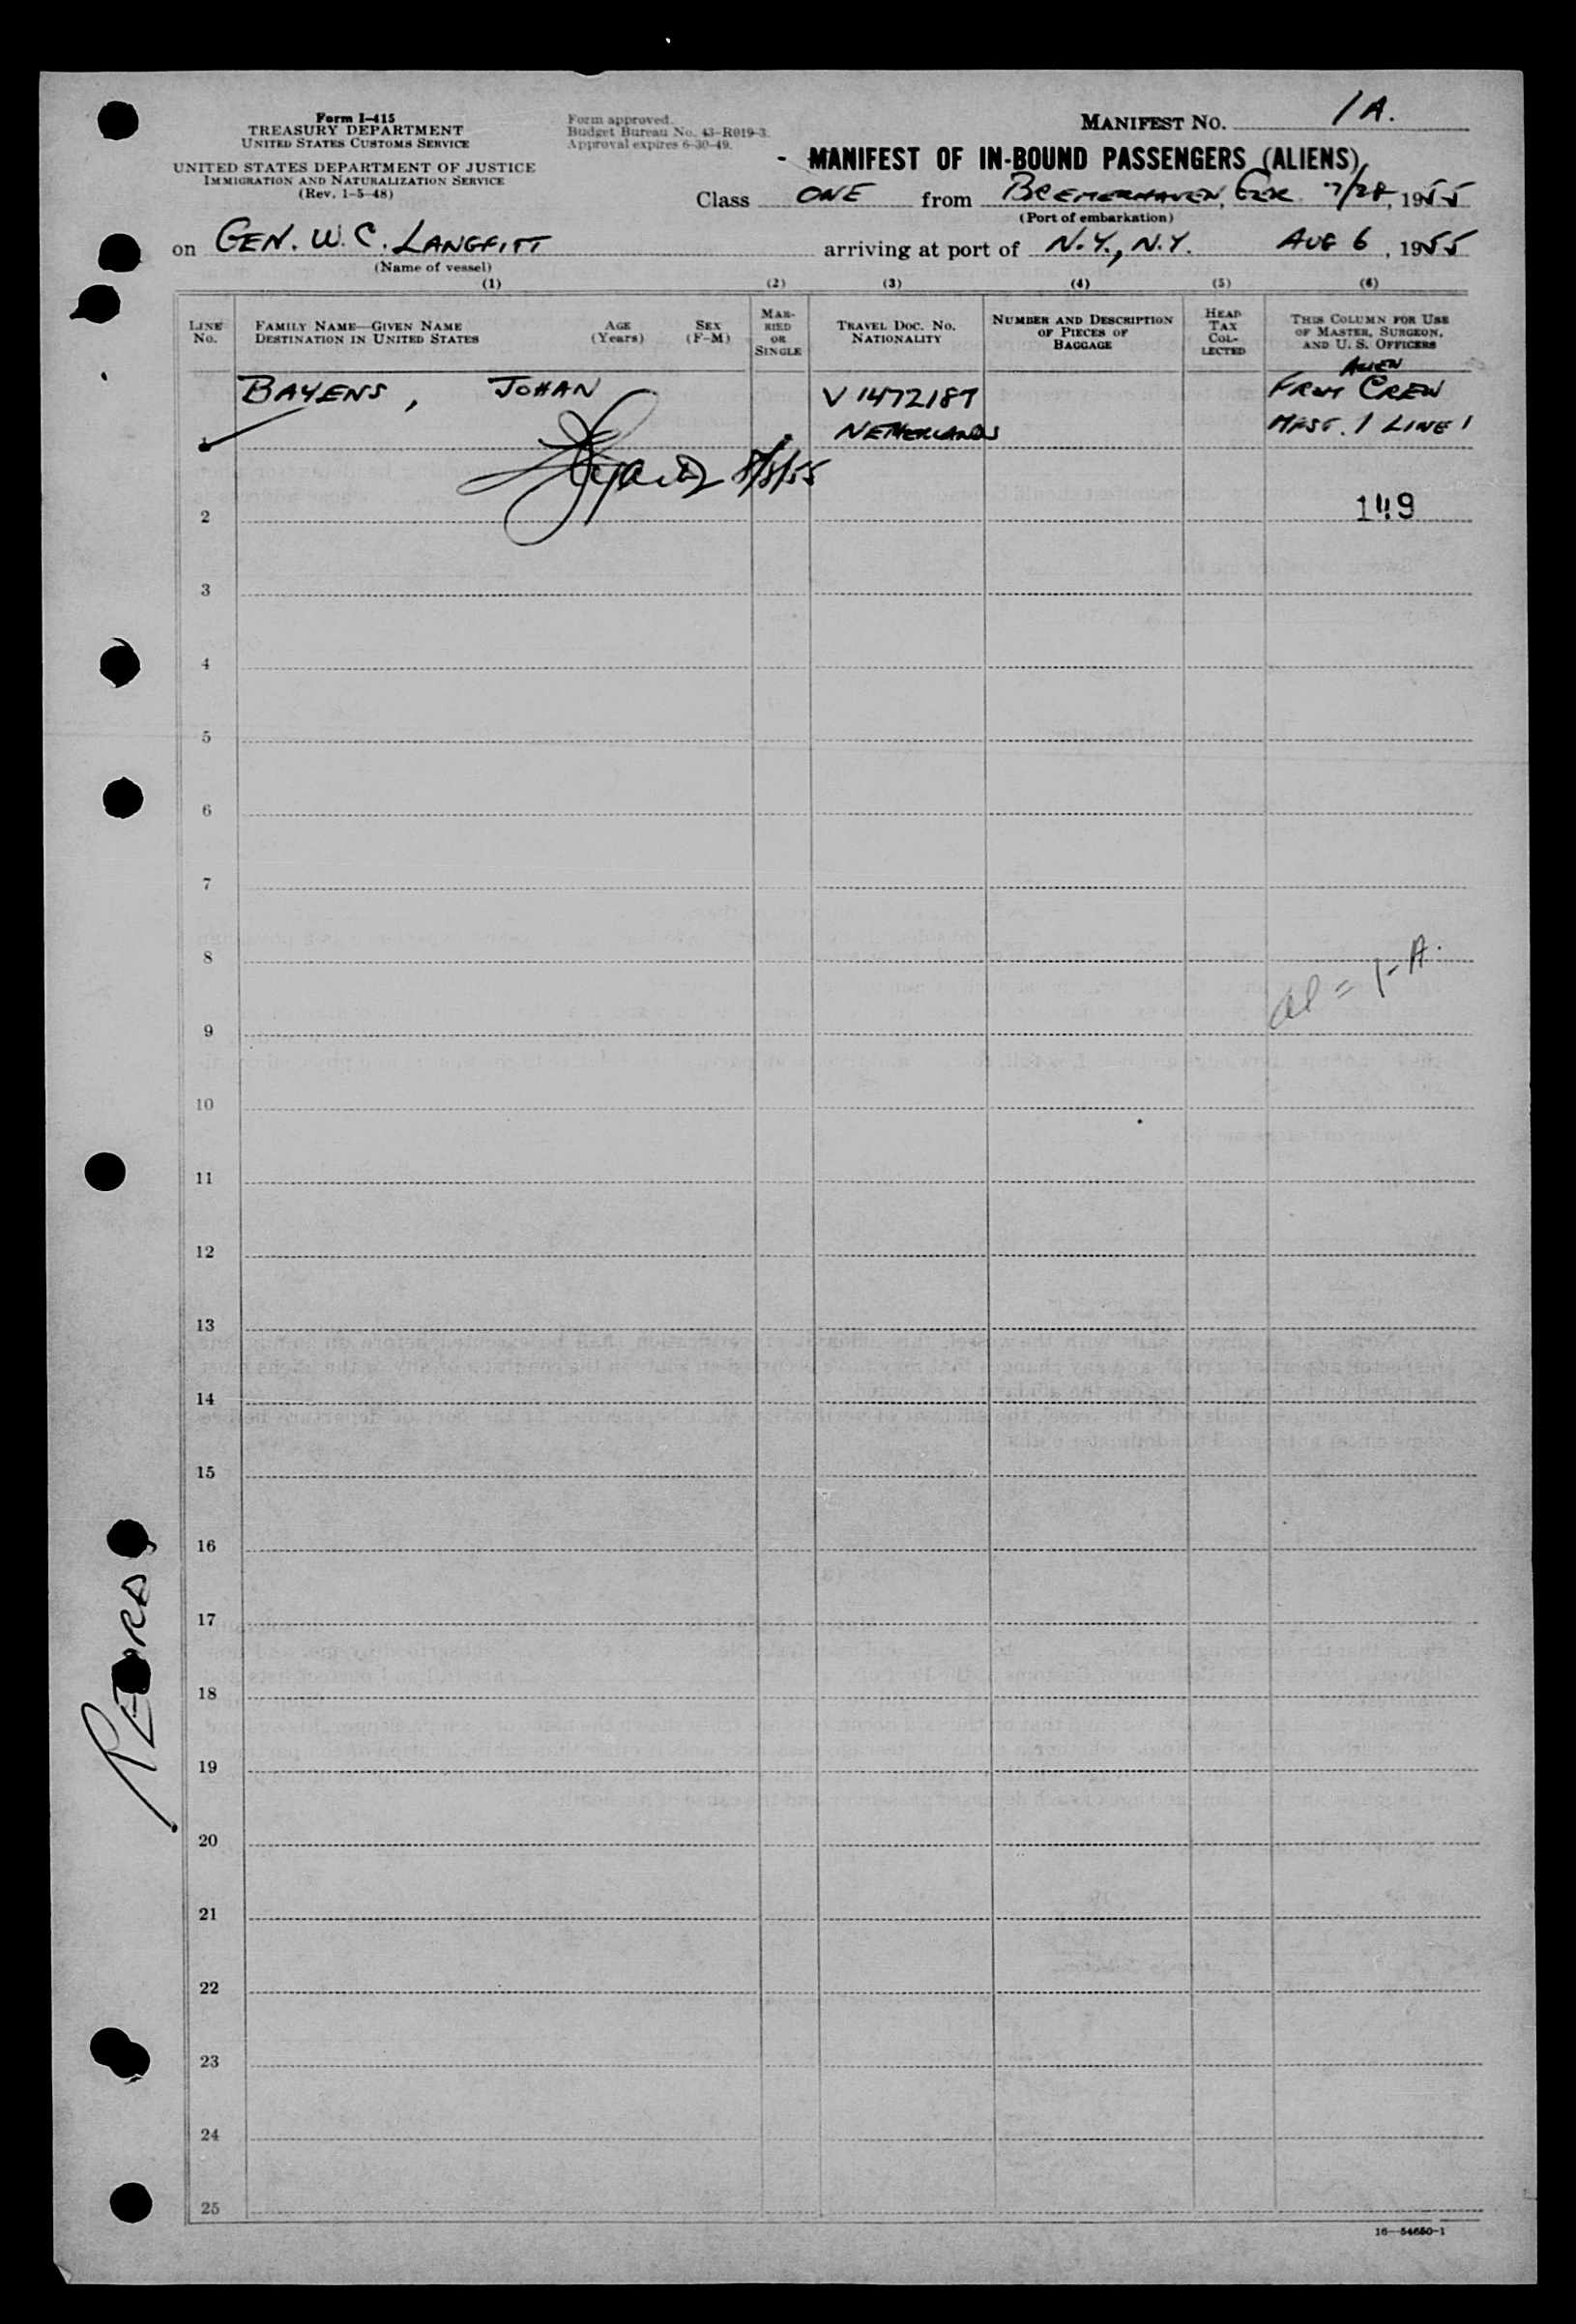 Form I-415
TREASURY DEPARTMENT
UNITED STATES CUSTOMS SERVICE
UNITED STATES DEPARTMENT OF JUSTICE
IMMIGRATION AND NATURALIZATION SERVICE
(Rev. 1-5-48)
Form approved.
Budget Bureau No. 43-R019-3.
Approval expires 6-30-49.
MANIFEST NO. 1A.
MANIFEST OF IN-BOUND PASSENGERS (ALIENS)
Class ONE from BREMERHAVEN, GER. 7/28, 1955
(Port of embarkation)
on GEN. W. C. LANGFITT arriving at port of N.Y., N.Y. AUG 6, 1955
(Name of vessel)
(1) (2) (3) (4) (5) (6)
LINE No.
FAMILY NAME—GIVEN NAME
DESTINATION IN UNITED STATES
AGE (Years)
SEX (F-M)
MARRIED OR SINGLE
TRAVEL DOC. NO. NATIONALITY
NUMBER AND DESCRIPTION OF PIECES OF BAGGAGE
HEAD TAX COLLECTED
THIS COLUMN FOR USE OF MASTER, SURGEON, AND U. S. OFFICERS
ALIEN
BAYENS, JOHAN V 1472187 FROM CREW
NETHERLANDS MFST. 1 LINE 1
1
8/8/55
2 149
3
4
5
6
7
8
al = 1-A.
9
10
11
12
13
14
15
16
17
18
19
20
21
22
23
24
25
16—54650-1